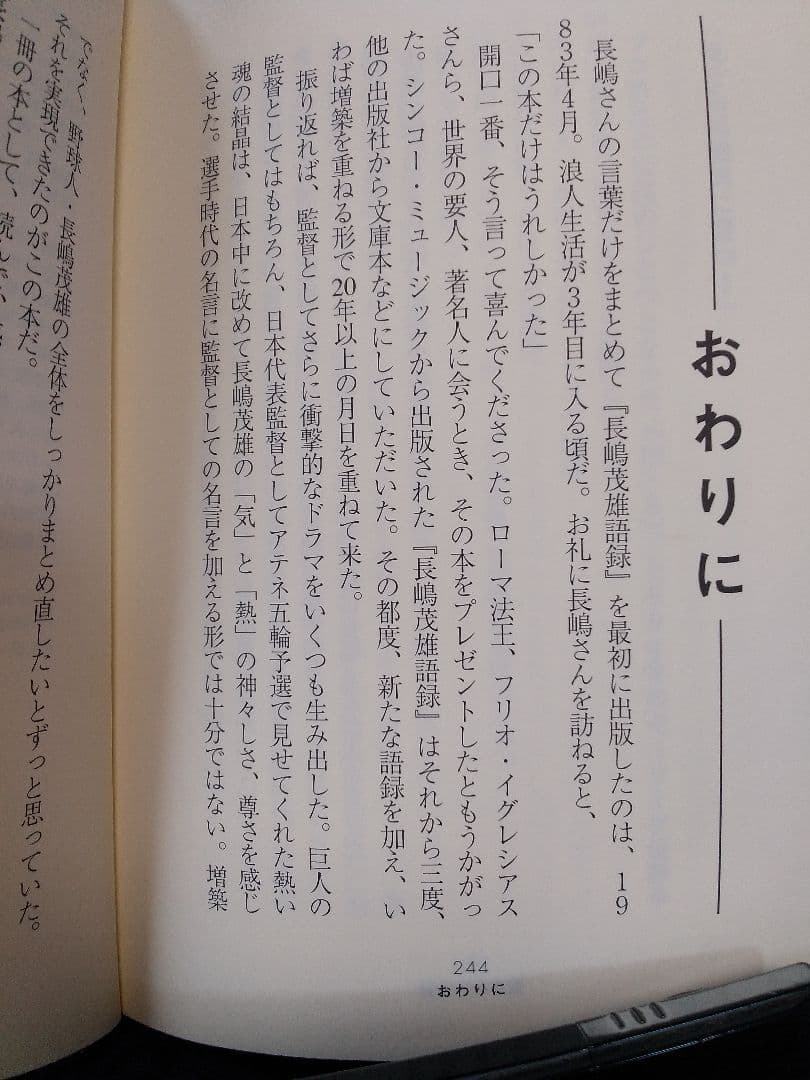 おわりに
長嶋さんの言葉だけをまとめて『長嶋茂雄語録』を最初に出版したのは、19
83年4月。浪人生活が3年目に入る頃だ。お礼に長嶋さんを訪ねると、
「この本だけはうれしかった」
開口一番、そう言って喜んでくださった。ローマ法王、フリオ・イグレシアス
さんら、世界の要人、著名人に会うとき、その本をプレゼントしたともうかがっ
た。シンコー・ミュージックから出版された『長嶋茂雄語録』はそれから三度、
他の出版社から文庫本などにしていただいた。その都度、新たな語録を加え、い
わば増築を重ねる形で20年以上の月日を重ねて来た。
振り返れば、監督としてさらに衝撃的なドラマをいくつも生み出した。巨人の
監督としてはもちろん、日本代表監督としてアテネ五輪予選で見せてくれた熱い
魂の結晶は、日本中に改めて長嶋茂雄の「気」と「熱」の神々しさ、尊さを感じ
させた。選手時代の名言に監督としての名言を加える形では十分ではない。増築
244
おわりに
でなく、野球人・長嶋茂雄の全体をしっかりまとめ直したいとずっと思っていた。
それを実現できたのがこの本だ。
一冊の本として、読んで、